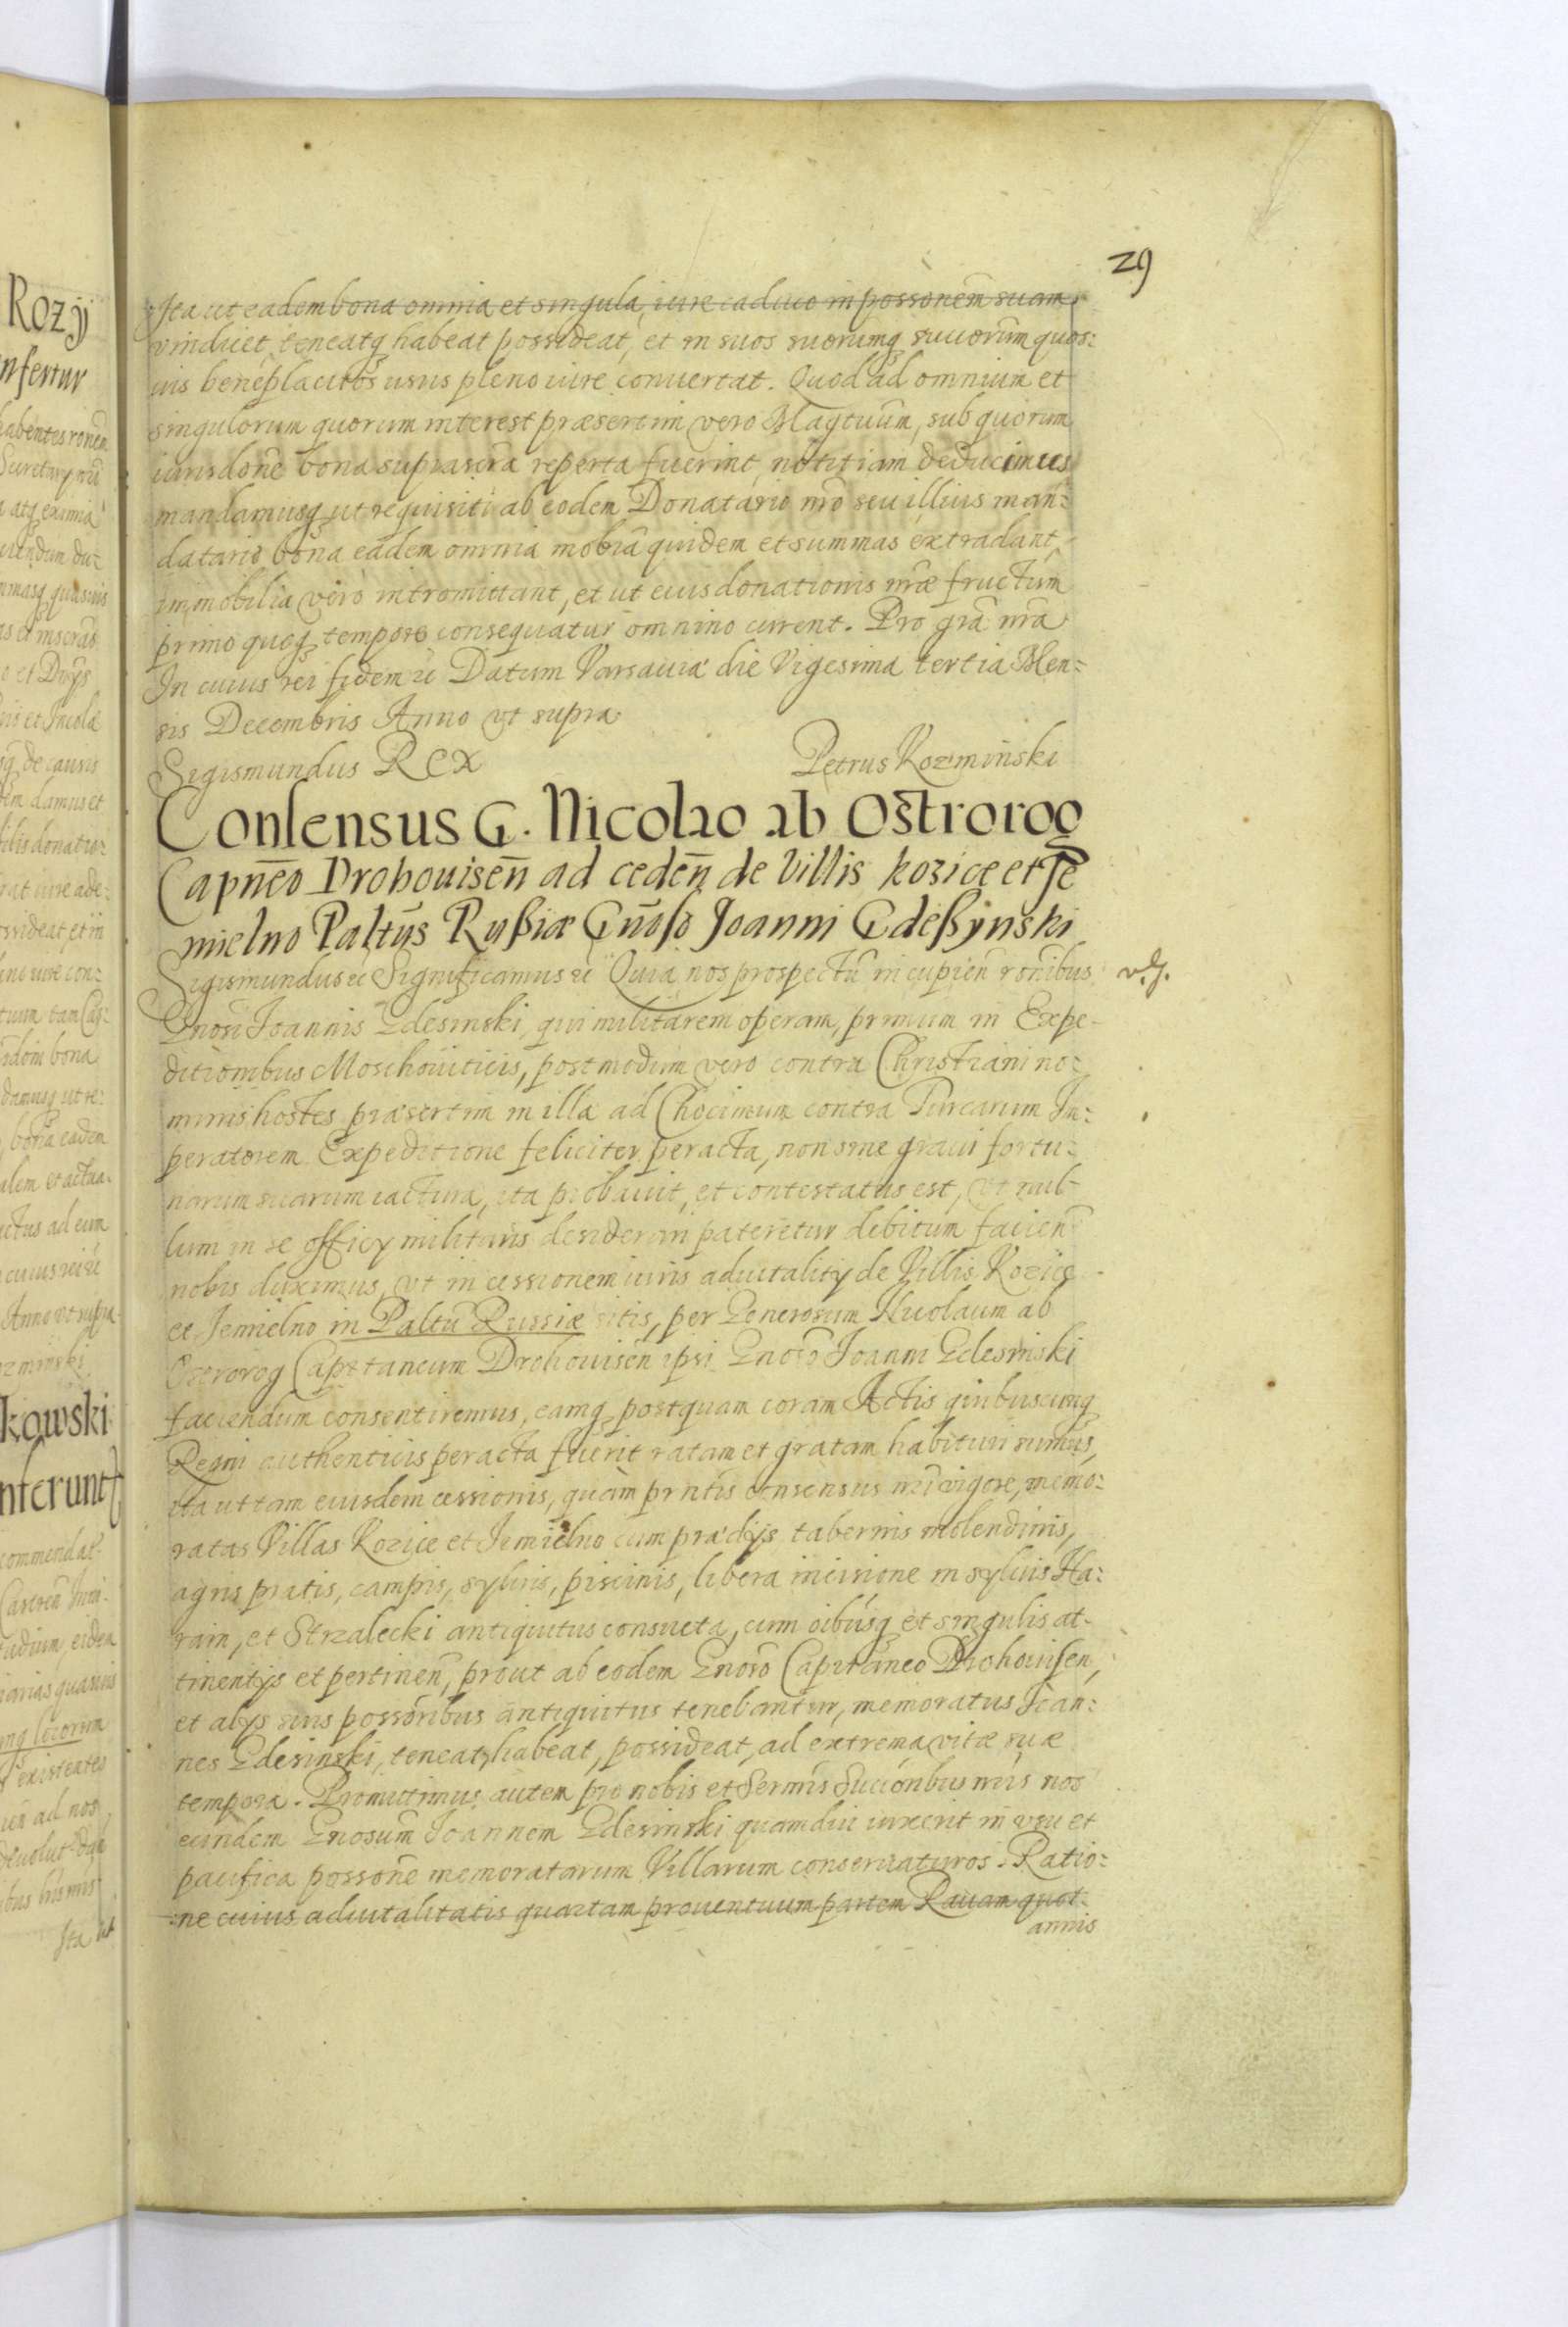 29
Ita ut eadem bona omnia et singula, iure caduco in possonem suam
vindicet, teneatq habeat possideat, et in suos suorumq succorum quos:
vis beneplacitos usus pleno iure convertat. Quod ad omnium et
singulorum quorum interest præsertim vero Magtuum, sub quorum
iurisdone bona suprascra reperta fuerint, notitiam deducimus
mandamusq ut requisiti ab eodem Donatario nro seu illius man:
datario, bona eadem omnia mobia quidem et summas extradant,
immobilia vero intromittant, et ut eius donationis nræ fructum
primo quoq tempore consequatur omnino curent. Pro gra nra
In cuius rei fidem Datum Varsaviæ die Vigesima tertia Men=
sis Decembris Anno vt supra
Sigismundus Rex Petrus Kozminski
Consensus G. Nicolao ab Ostrorog
Capneo Drohouisen ad ceden de Villis Kozice et Je
mielno Paltus Rußiæ Gnoso Joanni Gdeßynski
Sigismundus Significamus Quia nos prospectu in cupien ronibus
Gnosi Joannis Gdesinski, qui militarem operam, primum in Expe-
ditionibus Moschouiticis, postmodum vero contra Christiani no:
minis hostes præsertim in illa ad Chocimum contra Turcarum Im:
peratorem Expeditione feliciter peracta, non sine graui fortu:
narum suarum iactura, ita probauit, et contestatus est, vt nul-
lum in se officij militaris desiderari pateretur debitum facien
nobis duximus, vt in cessionem iuris aduitalitij de Villis Kozice
et Jemielno in Paltu Russiæ sitis, per Generosum Nicolaum ab
Ostrorog Capitaneum Drohouisen ipsi Gnoso Joanni Gdesinski
faciendum consentiremus, eamq postquam coram Actis quibuscunq
Regni authenticis peracta fuerit ratam et gratam habituri sumus,
ita ut tam eiusdem cessionis, quàm prntis consensus nri vigore, memo:
ratas Villas Kozice et Jemielno cum prædijs tabernis molendinis,
agris pratis, campis, syluis, piscinis, libera incisione in syluis Ha:
rain, et Strzalecki antiquitus consueta, cum oibusq et singulis at-
tinentijs et pertinen, prout ab eodem Gnoso Capitaneo Drohouisen,
et alijs suis possoribus antiquitus tenebantur, memoratus Joan:
nes Gdesinski, teneat, habeat, possideat, ad extrema vitæ suæ
tempora. Promittimus autem pro nobis et Sermis Succoribus nris nos
eundem Gnosum Joannem Gdesinski quamdiu vixerit in vsu et
pacifica possone memoratarum Villarum conseruaturos. Ratio:
ne cuius aduitalitatis quartam prouentuum partem Rauam quot
annis